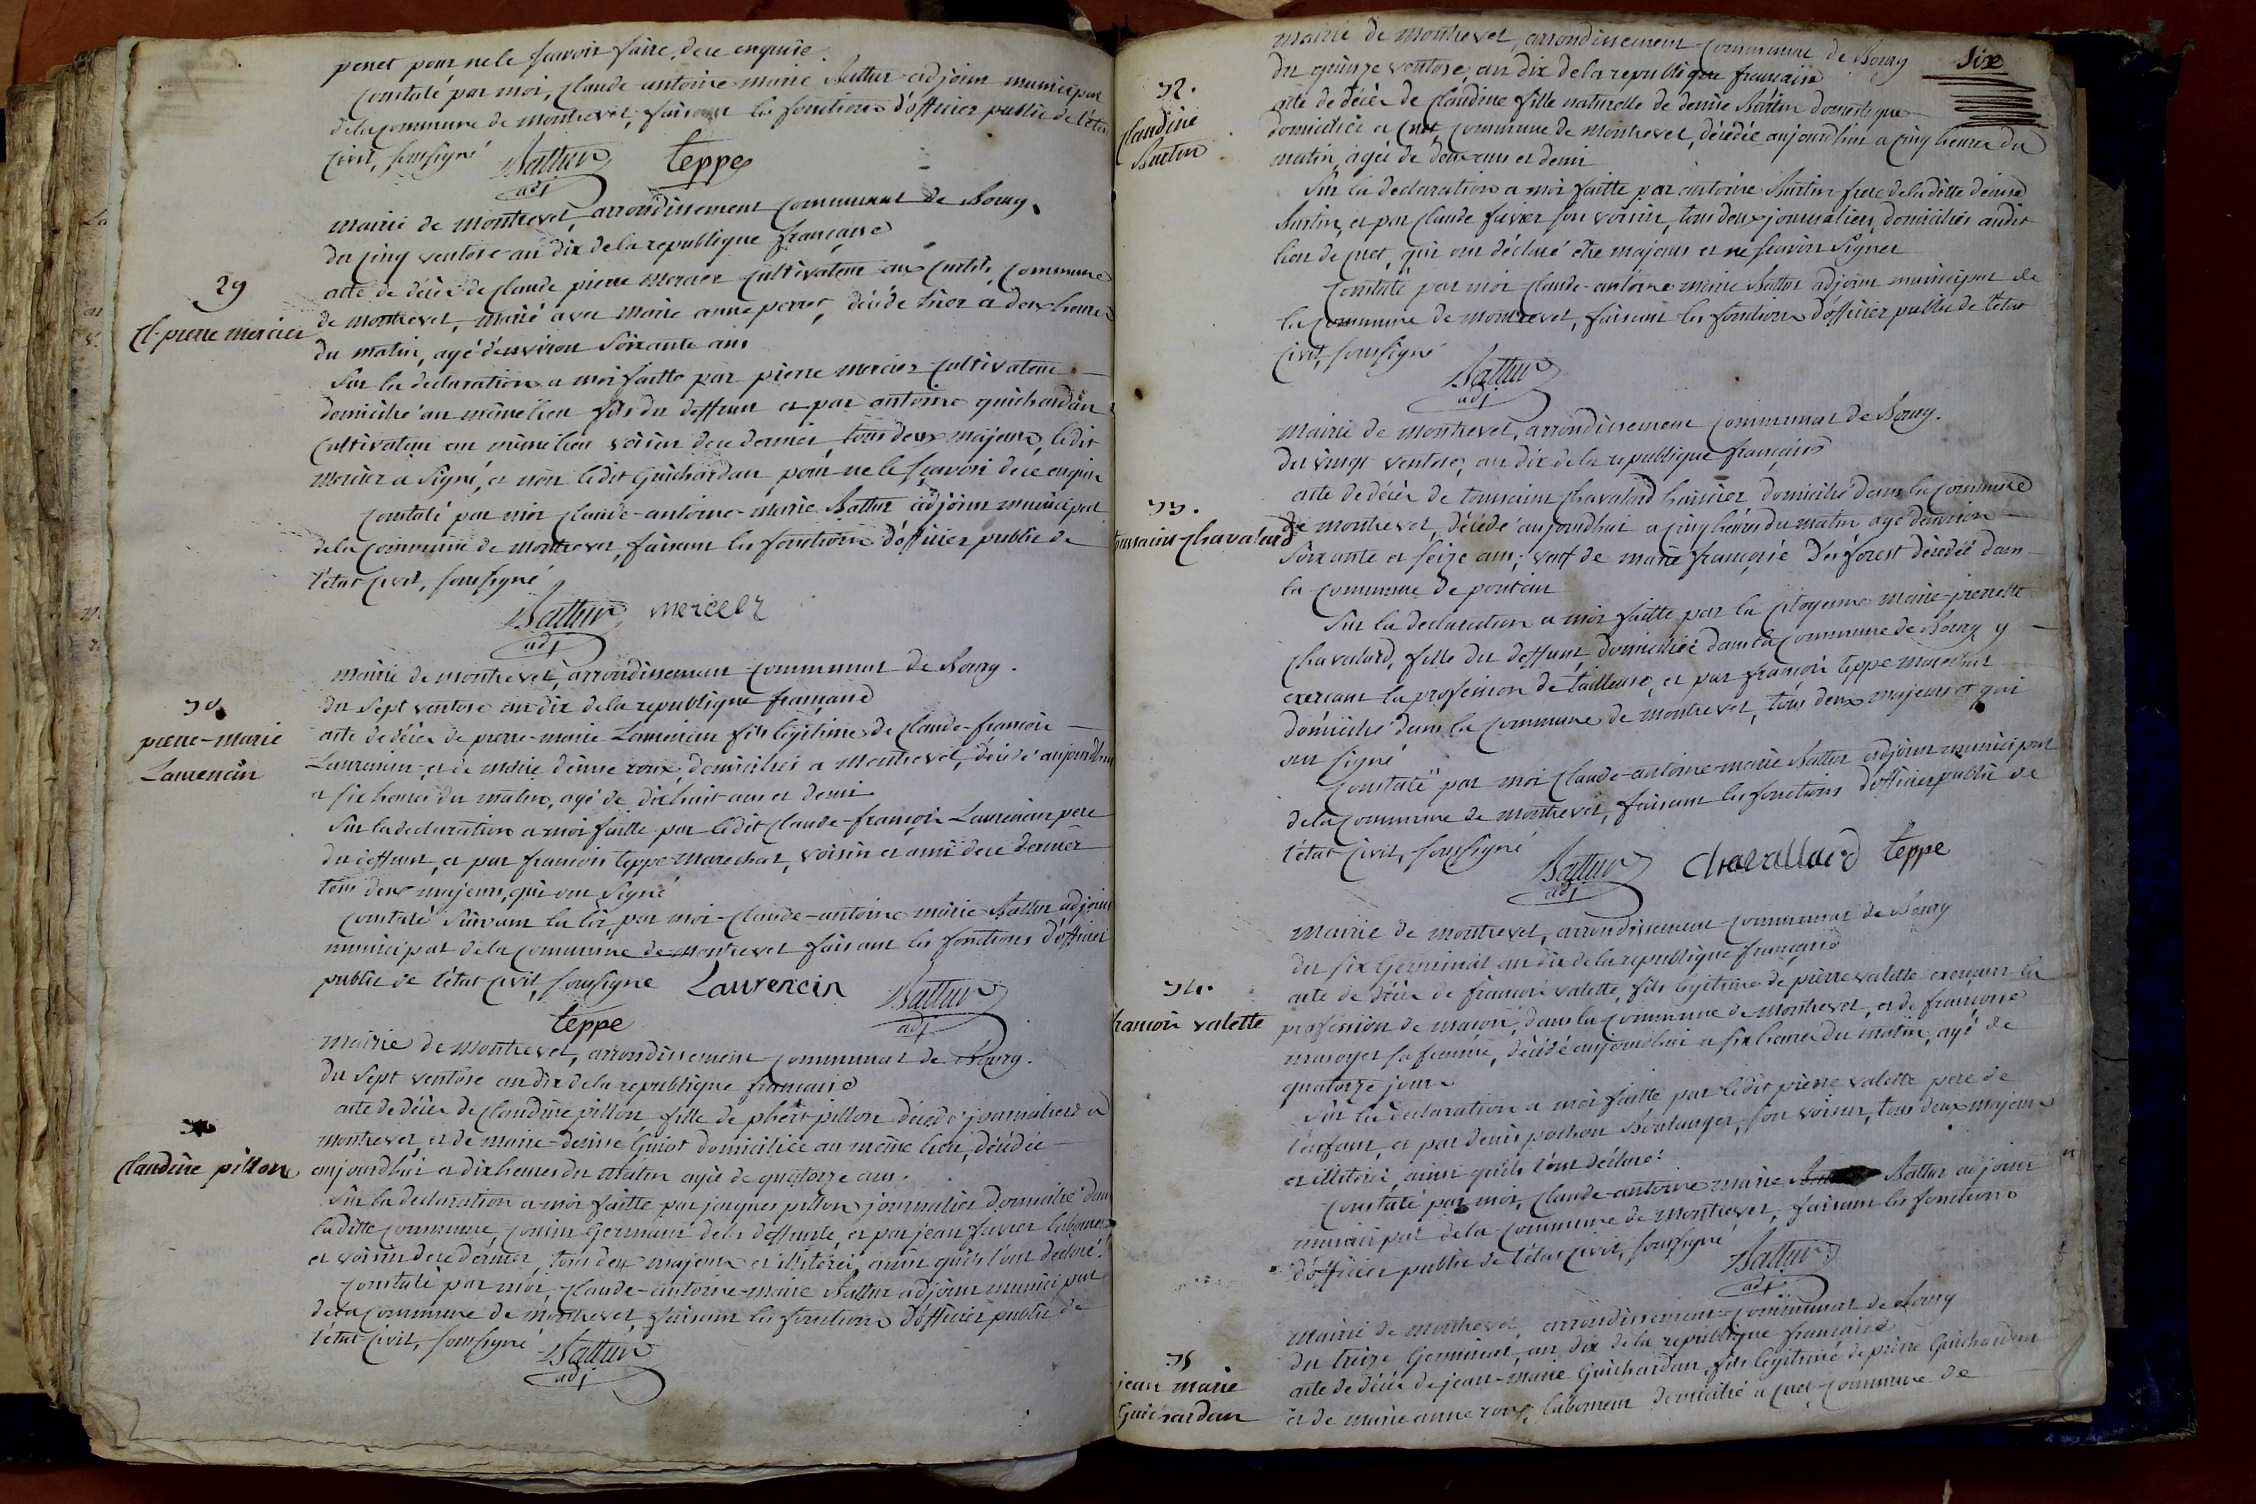 perret pour ne le scavoir faire, de ce enquise.
Constaté par moi, Claude-antoine-marie Battur adjoint municipal
de la Commune de montrevel, faisant les fonctions d'officier public de l'état
Civil, soussigné
Battur adj teppe
mairie de montrevel, arrondissement Communal de Bourg.
du cinq ventose an dix de la republique française
29
Cl-pierre mercier
acte de décès de Claude pierre mercier Cultivateur aux Curtils, Commune
de montrevel, marié avec marie anne perret, décédé hier à deux heures
du matin, agé d'environ soixante ans
Sur la declaration a moi faitte par pierre mercier Cultivateur
domicilié au même lieu fils du deffunt et par antoine guichardan
Cultivateur au même lieu voisin de ce dernier, tous deux majeurs, ledit
mercier a signé, et non ledit Guichardan, pour ne le sçavoir de ce enquis
Constaté par moi Claude-antoine-marie Battur adjoint municipal
de la Commune de montrevel, faisant les fonctions d'officier public de
l'état Civil, soussigné
Battur adj merceir
mairie de montrevel, arrondissement Communal de Bourg.
du sept ventose an dix de la republique française
30.
pierre-marie
Laurencin
acte de décès de pierre-marie Laurencin fils légitime de Claude-françois
Laurencin et de marie denise roux, domiciliés a Montrevel, décédé aujourdhui
a six heures du matin, agé de dix huit ans et demi
Sur la declaration a moi faitte par ledit Claude-françois Laurencin pere
du deffunt, et par francois teppe marechal, voisin et ami de ce dernier
tous deux majeurs, qui ont signé
Constaté suivant la loi, par moi-Claude-antoine marie Battur adjoint
municipal de la Commune de Montrevel faisant les fonctions d'officier
public de l'état Civil, soussigné Laurencin Battur adj
teppe
mairie de montrevel, arrondissement Communal de Bourg.
du sept ventose an dix de la republique française
Claudine pillon
acte de décès de Claudine pillon, fille de phert pillon décédé journalier a
montrevel, et de marie-denise Guiot domiciliée au même lieu, décédée
aujourdhui a dix heures du matin agée de quatorze ans.
Sur la declaration a moi faitte par jacques pillon journalier domicilié dans
ladite Commune, Cousin Germain de la deffunte, et par jean favier laboureur
et voisin de ce dernier, tous deux majeurs et illiterés, ainsi qu'ils l'ont declaré.
Constaté par moi, Claude-antoine-marie Battur adjoint municipal
de la Commune de montrevel, faisant les fonctions d'officier public de
l'état Civil, soussigné Battur adj
mairie de montrevel, arrondissement Communal de Bourg
six
du quinze ventose, an dix de la republique française
32.
Claudine
Burtin
acte de décès de Claudine fille naturelle de denise Burtin domestique
domiciliée a Cuet, Commune de Montrevel, décédée aujourdhui a cinq heures du
matin, agée de deux ans et demi
Sur la declaration a moi faitte par antoine Burtin frere de la ditte denise
Burtin, et par Claude favier son voisin, tous deux journaliers, domiciliés audit
lieu de Cuet, qui ont déclaré être majeurs et ne scavoir signer
Constaté par moi Claude-antoine-marie Battur adjoint municipal de
la Commune de Montrevel, faisant les fonctions d'officier public de l'état
Civil, soussigné
Battur adj
Mairie de Montrevel, arrondissement Communal de Bourg.
du vingt ventose, an dix de la republique française
33.
toussaint Chavalard
acte de décès de toussaint Chavalard huissier, domicilié dans la Commune
de montrevel, décédé aujourdhui a cinq heures du matin agé d'environ
soixante et seize ans; veuf de marie françoise Desforest décédée dans
la Commune de pontain
Sur la declaration a moi faitte par la Citoyenne marie-pierrette
Chavalard, fille du deffunt, domiciliée dans la Commune de Bourg y
exerçant la profession de tailleuse, et par françois teppe marechal
domicilié dans la Commune de montrevel, tous deux majeurs et qui
ont signé
Constaté par moi Claude-antoine-marie Battur adjoint municipal
de la Commune de Montrevel, faisant les fonctions d'officier public de
l'état Civil, soussigné
Battur adj Chavallard teppe
Mairie de montrevel, arrondissement Communal de Bourg
du six Germinal an dix de la republique française
34.
francois valette
acte de décès de francois valette, fils légitime de pierre valette exerçant la
profession de maçon, dans la Commune de Montrevel, et de françoise
masoyer sa femme, décédé aujourdhui a six heures du matin, agé de
quatorze jours
Sur la declaration a moi faitte par ledit pierre valette pere de
l'enfant, et par denis pochon Boulanger, son voisin, tous deux majeurs
et illiterés, ainsi qu'ils l'ont déclaré.
Constaté par moi, Claude-antoine marie Battur adjoint
municipal de la Commune de Montrevel, faisant les fonctions
d'officier public de l'état Civil, soussigné
Battur adj
Mairie de montrevel, arrondissement Communal de Bourg
du treize Germinal, an dix de la republique française
35
jean marie
Guichardan
acte de décès de jean-marie Guichardan, fils légitime de pierre Guichardan
et de marie anne roux, laboureur domicilié a Cuet Commune de